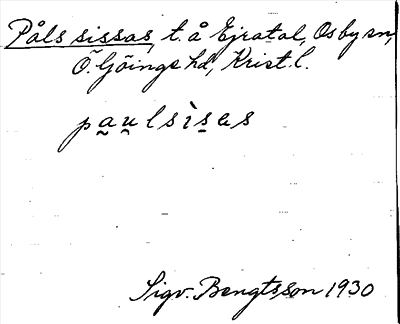 Påls sissas, t. å Ejratal, Osby sn,
Ö. Göinge hd, Krist. l.
pa̰ṵlsìs̱as
Sigv. Bengtsson 1930